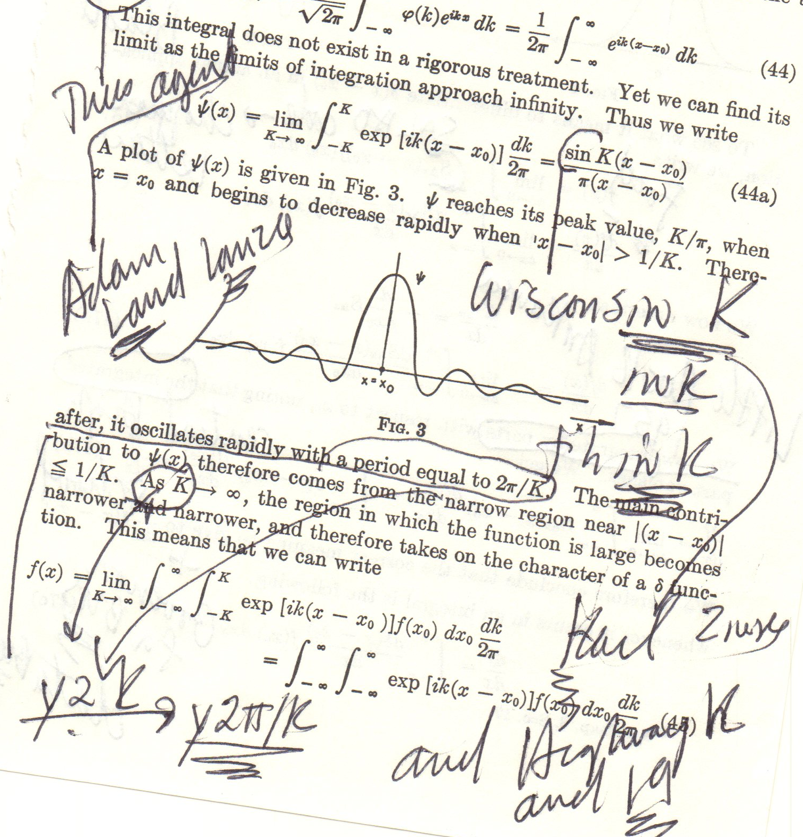 1/√2π ∫_{-∞}^{∞} φ(k)e^{ikx} dk = 1/2π ∫_{-∞}^{∞} e^{ik(x-x₀)} dk (44)
This integral does not exist in a rigorous treatment. Yet we can find its
limit as the limits of integration approach infinity. Thus we write
Thus agent
ψ(x) = lim_{K→∞} ∫_{-K}^{K} exp [ik(x − x₀)] dk/2π = sin K(x − x₀)/π(x − x₀) (44a)
A plot of ψ(x) is given in Fig. 3. ψ reaches its peak value, K/π, when
x = x₀ and begins to decrease rapidly when |x − x₀| > 1/K. There-
Adam
Land
Wisconsin K
ψ
inK
x = x₀
x
FIG. 3
thinK
after, it oscillates rapidly with a period equal to 2π/K. The main contri-
bution to ψ(x) therefore comes from the narrow region near |(x − x₀)|
≦ 1/K. As K → ∞, the region in which the function is large becomes
narrower and narrower, and therefore takes on the character of a δ func-
tion. This means that we can write
f(x) = lim_{K→∞} ∫_{-∞}^{∞} ∫_{-K}^{K} exp [ik(x − x₀)]f(x₀) dx₀ dk/2π
= ∫_{-∞}^{∞} ∫_{-∞}^{∞} exp [ik(x − x₀)]f(x₀) dx₀ dk/2π (45)
y2K
y2π/K
and Highway K
and 19